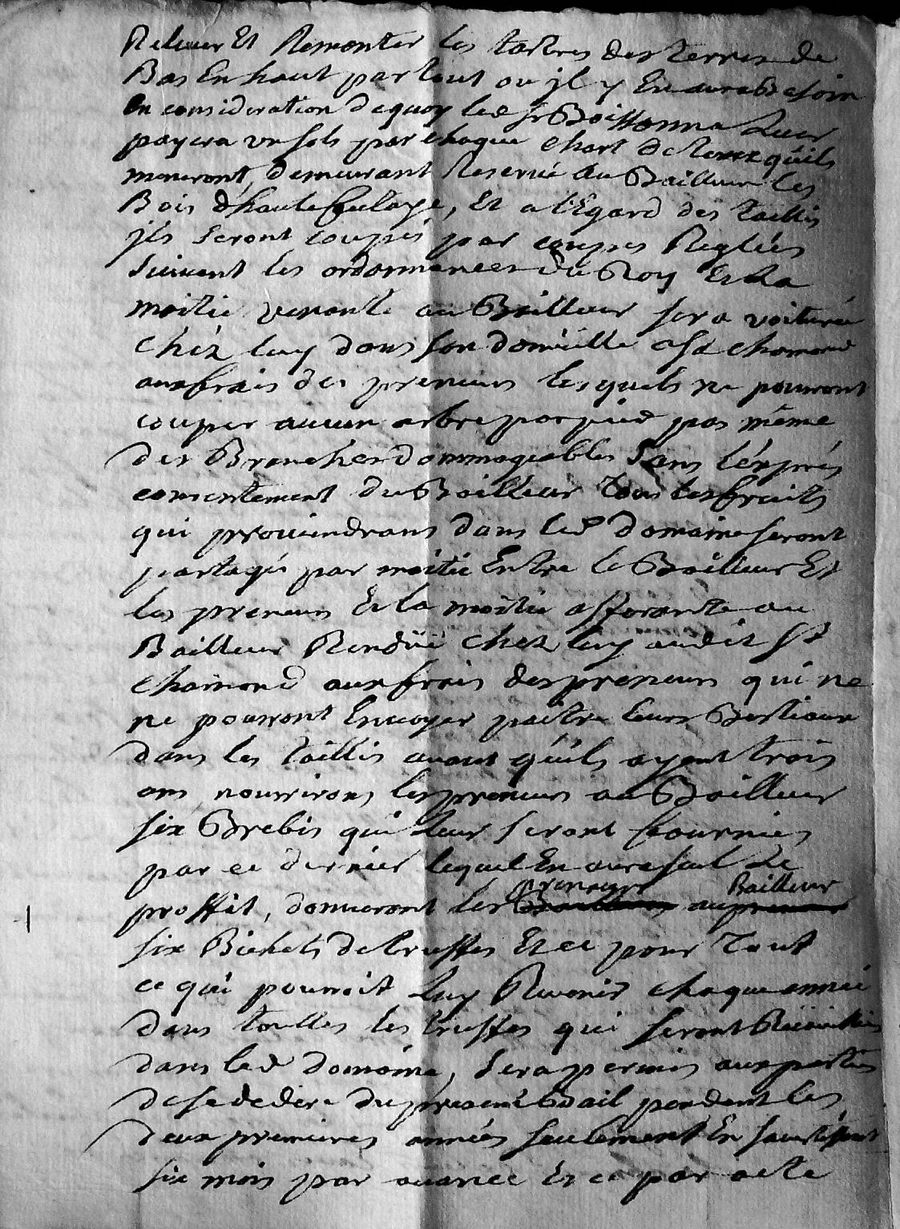 Relever Et Remonter les tertres des terres de
Bas En haut par tout ou jl y En aura Besoin
En consideration dequoy led Sr Boissonna Leur
payera un sols par chaque chart de terre quils
meneront, demeurant Reservé Au Bailleur les
Bois d'haute futaye, Et a l'Egard des taillis
jls seront coupés par coupes Reglées
suivant les ordonnances du Roy Et La
moitié venante au Bailleur sera voiturée
chéz luy dans son domicille a St chamond
aux frais des preneurs lesquels ne pourront
couper aucun arbre par pied pas même
des Branches dommageables sans l'exprés
consentement du Bailleur tous les fruits
qui proviendrons dans led domaine seront
partagés par moitié Entre le Bailleur Et
les preneurs Et la moitié afferante au
Bailleur Rendüe chez luy audit St
chamond aux frais des preneurs qui ne
ne pourront Envoyer paitre leurs Bestiaux
dans les taillis avant quils ayent trois
ans nourrirons les preneurs au Bailleur
six Brebis qui Leur seront fournies
par ce dernier lequel En aura seul Le
proffit, donneront les preneurs au Bailleur
six Bichets de truffes Et ce pour tout
ce qui pourroit Luy Revenir chaque année
dans toutes les truffes qui seront Recüeillies
dans led domaine, sera permis aux parties
de se dedire du present Bail pendent les
deux premieres années seulement En
six mois par avance Et ce par acte